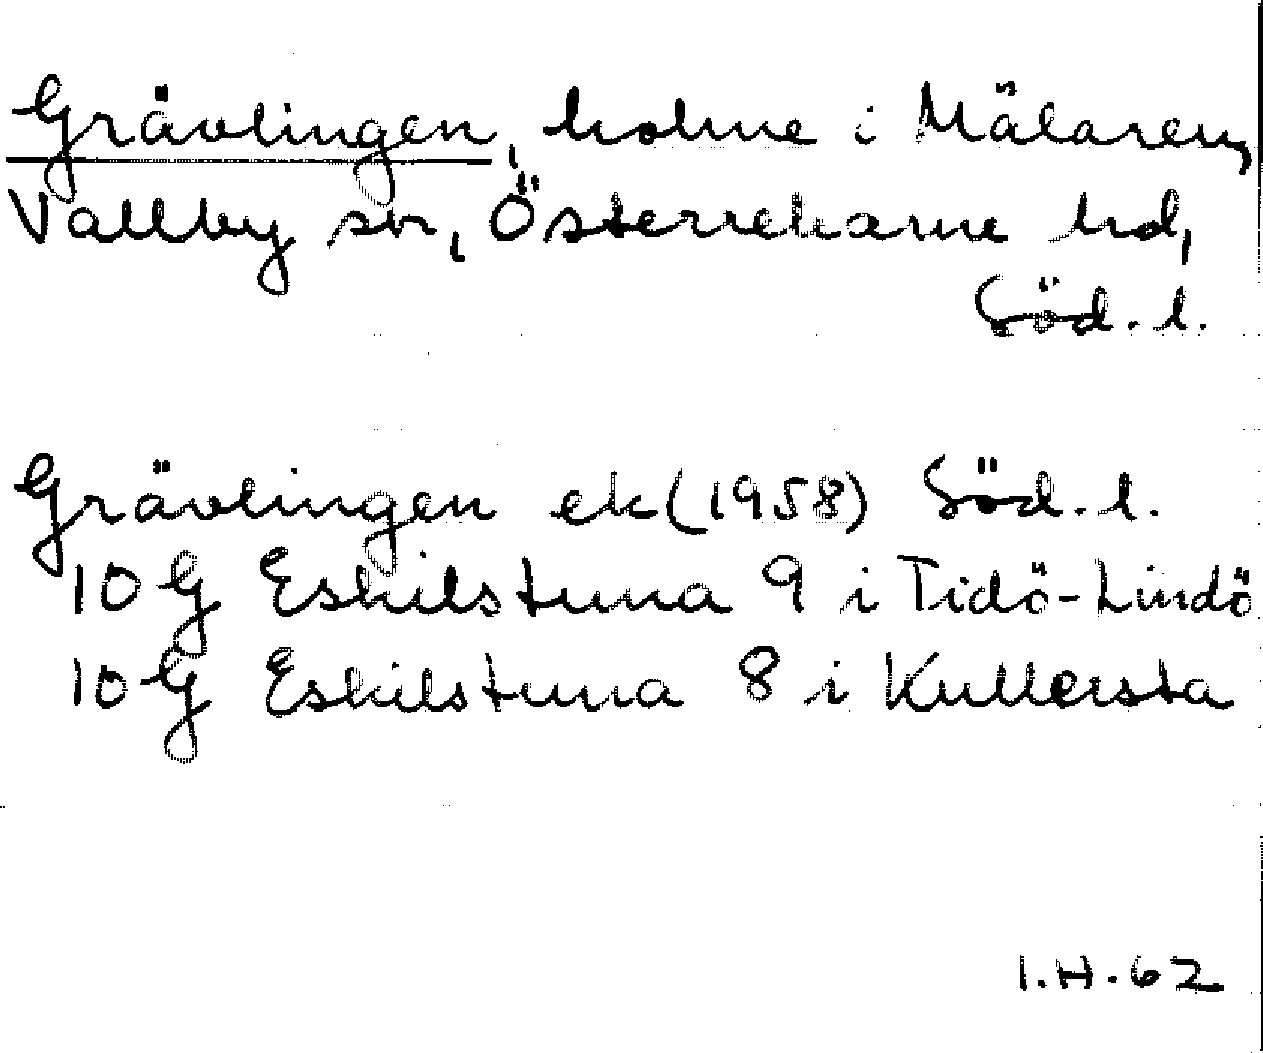 Grävlingen, holme i Mälaren,
Vallby sn, Österrekarne hd,
Söd. l.
Grävlingen ek (1958) Söd. l.
10 G Eskilstuna 9 i Tidö-Lindö
10 G Eskilstuna 8 i Kullersta
I.H. 62